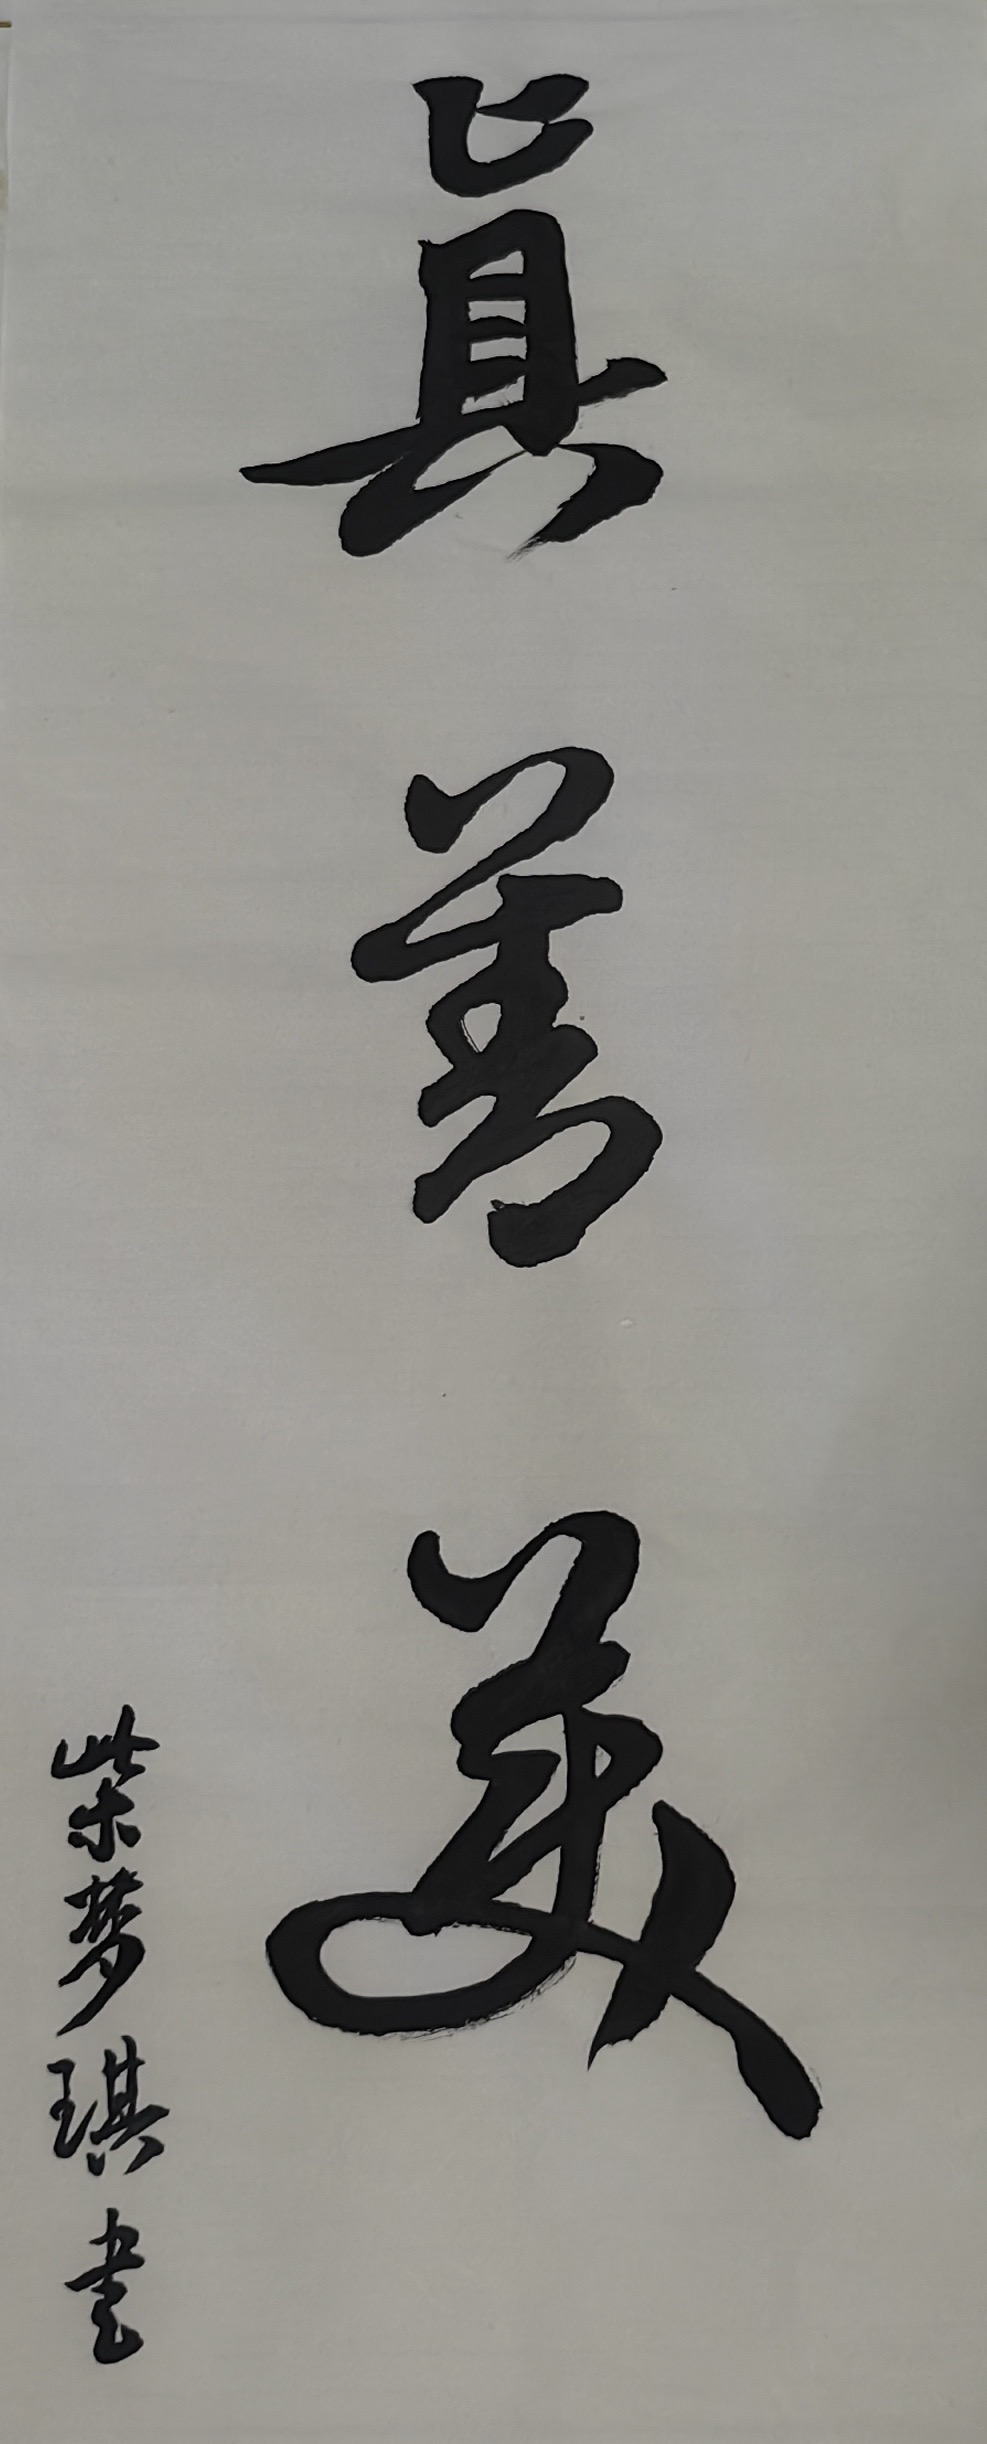 真善美
柴梦琪书